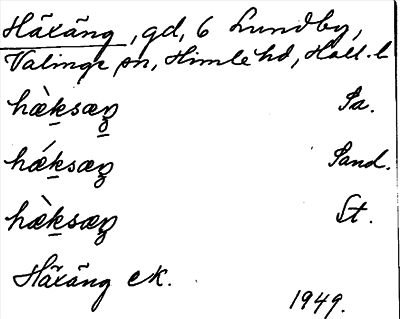 Häxäng, gd, 6 Lundby,
Valinge sn, Himle hd, Hall. l
hæ̀k̲sæŋ̲ Sa.
hǽk̲sæŋ Sand.
hæ̀k̲sæŋ St.
Häxäng ek.
1949.